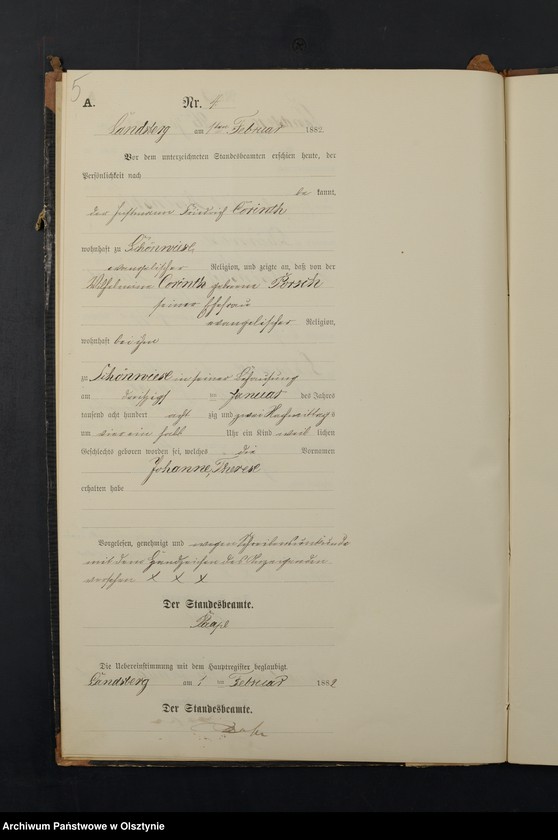 5
A. Nr. 4
Landsberg am 1ten Februar 1882.
Vor dem unterzeichneten Standesbeamten erschien heute, der
Persönlichkeit nach
be kannt,
der Instmann Friedrich Corinth
wohnhaft zu Schönwiese
evangelischer Religion, und zeigte an, daß von der
Wilhelmine Corinth geborene Porsch
seiner Ehefrau
evangelischer Religion,
wohnhaft bei ihm
zu Schönwiese in seiner Behausung
am dreißigsten Januar des Jahres
tausend acht hundert acht zig und zwei Nachmittags
um vier ein halb Uhr ein Kind weib lichen
Geschlechts geboren worden sei, welches die Vornamen
Johanne, Therese
erhalten habe
Vorgelesen, genehmigt und wegen Schreibensunkunde
mit dem Handzeichen des Anzeigenden
versehen X X X
Der Standesbeamte.
Die Uebereinstimmung mit dem Hauptregister beglaubigt.
Landsberg am 1 ten Februar 1882
Der Standesbeamte.
Archiwum Państwowe w Olsztynie